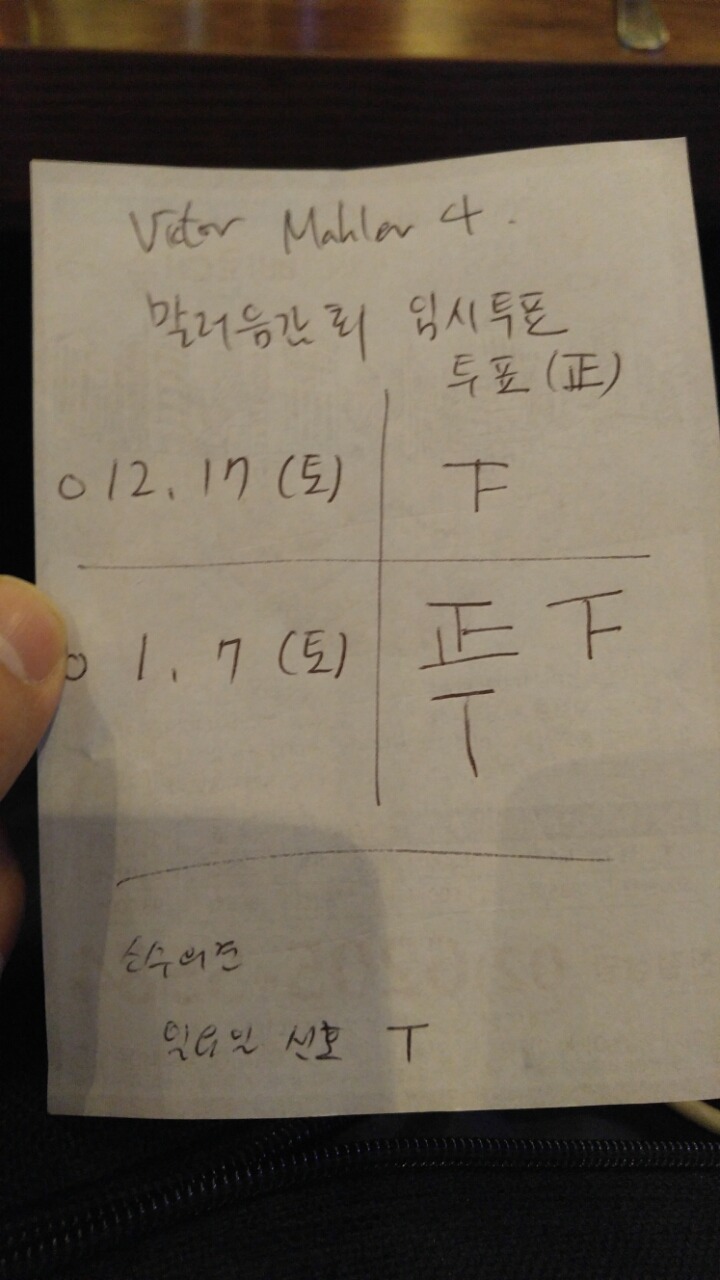 Victor Mahler 4.
말러음감회 임시투표
투표(正)
○ 12. 17 (토) 下
○ 1. 7 (토) 正 下
丅
소수의견
일요일 선호 丅